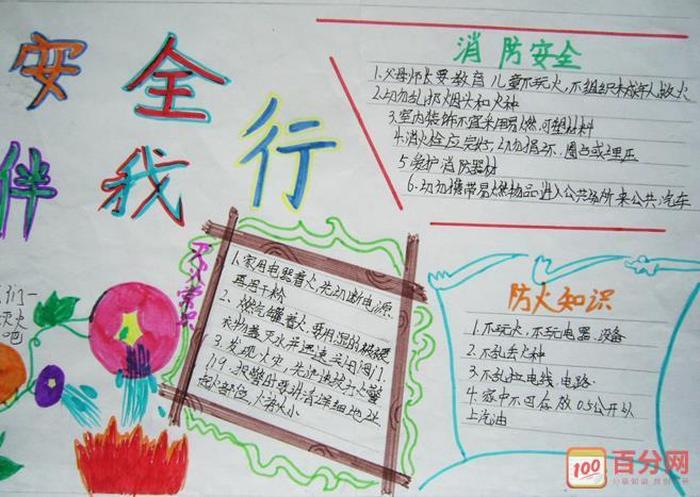 安全
伴我行
消防安全
1.父母师长要教育儿童不玩火,不组织未成年人救火
2.切勿乱扔烟头和火种
3.室内装饰不宜采用易燃,可塑材料
4.消火栓应完好,切勿损坏、圈占或埋压
5.爱护消防器材
6.切勿携带易燃物品进入公共场所来公共汽车
灭火常识
1.家用电器着火,先切断电源
再用干粉
2.燃气罐着火,要用湿的被褥
衣物盖灭火并迅速关闭阀门
3.发现火灾,先迅速拨打火警
119.报警时要讲清详细地址
起火部位,火势大小
防火知识
1.不玩火,不玩电器设备
2.不乱丢火种
3.不乱拉电线,电路.
4.家中不可存放0.5公升以
上汽油
们一
灭火
吧
100 百分网